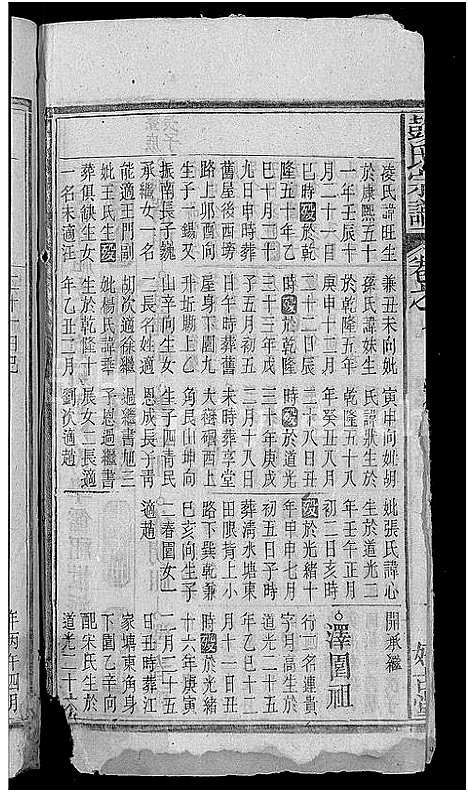 彭氏宗譜
卷之
凌氏諱旺生
於康熙五十
一年壬辰十
月二十一日
巳時歿於乾
隆五十年乙
巳十月二十
九日申時葬
舊屋後西塝
路上卯酉向
生子一錫爻
振南長子巍
承繼女一名
能適王門副
妣王氏生歿
葬俱缺生女
一名未適汪
兼丑未向妣
孫氏諱妹生
於乾隆五年
庚申十二月
二十二日辰
時歿於乾隆
三十三年戊
子五月初五
日午時葬舊
屋身下園九
升坵塝上乙
山辛向生女
二長名姓適
胡次適徐繼
妣楊氏諱乖
生於乾隆十
年乙丑二月
寅申向妣胡
氏諱狀生於
乾隆五十八
年癸丑八月
二十八日丑
時歿於道光
三十年庚戌
二月十八日
未時葬享堂
大樹碾西上
艮山坤向
生子四青民
恩成長子靑
過繼書旭三
子恩過繼書
展女二長適
劉次適趙
妣張氏諱心
生於道光二
年壬午正月
初二日亥時
歿於光緒十
年甲申七月
初五日子時
葬淸水塘東
田眠背上小
路下巽乾兼
巳亥向生子
二春園女一
適趙
開承繼
澤園祖
行一名連貴
字月高生於
道光二十五
年乙巳十二
月十一日丑
時歿於光緒
十六年庚寅
二月二十五
日丑時葬江
家塘東角身
下園乙辛向
配宋氏生於
道光二十六
年丙午四月